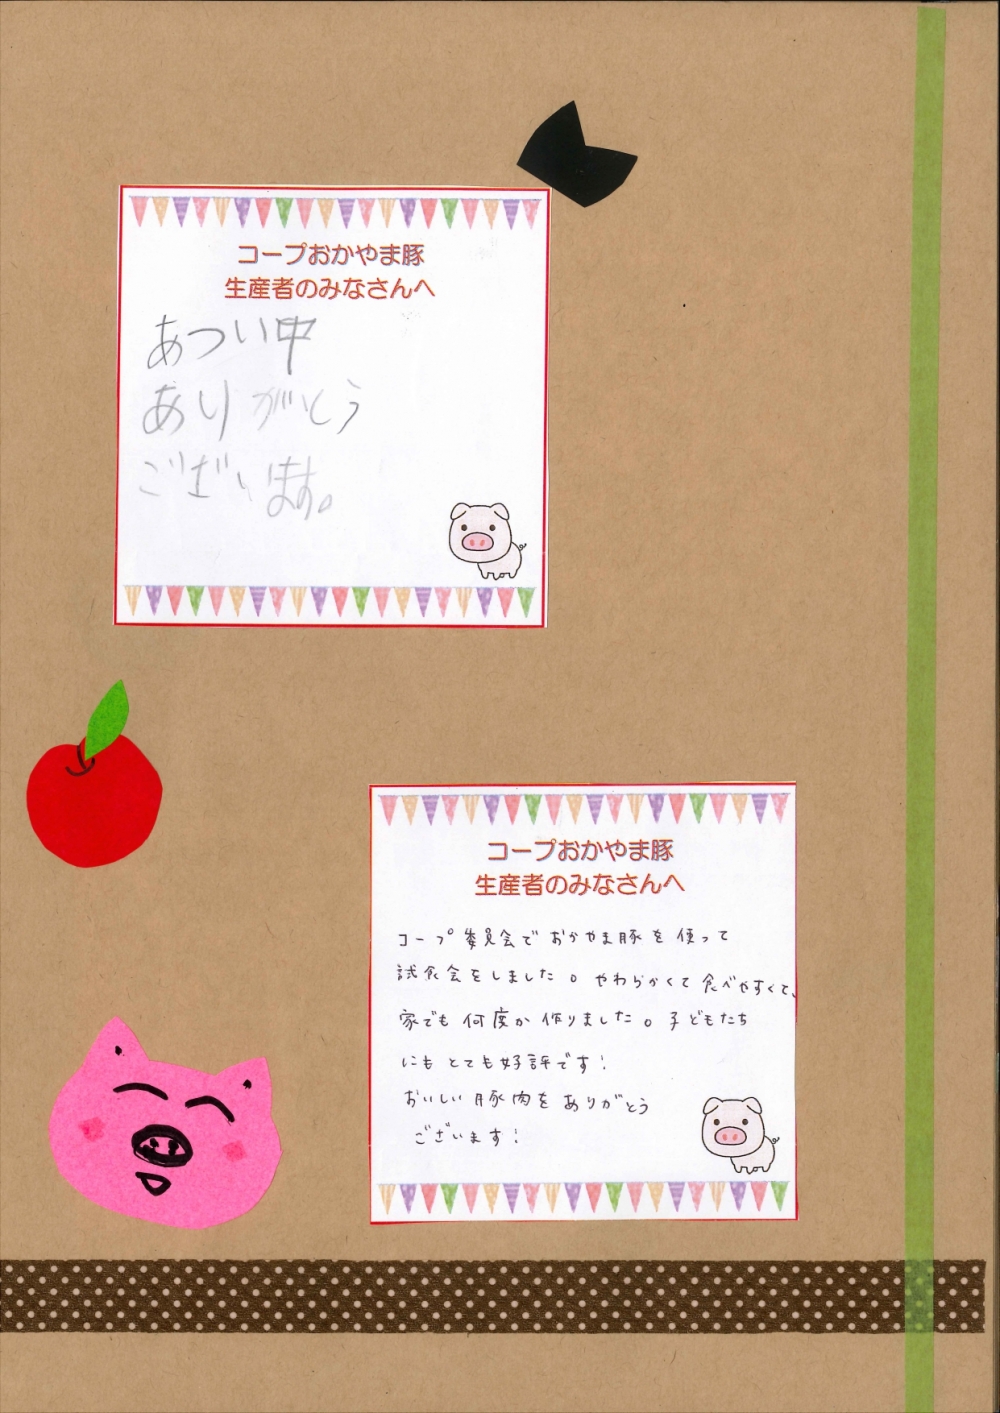 コープおかやま豚
生産者のみなさんへ
あつい中
ありがとう
ございます。
コープおかやま豚
生産者のみなさんへ
コープ委員会でおかやま豚を使って
試食会をしました。やわらかくて食べやすくて、
家でも何度か作りました。子どもたち
にもとても好評です!
おいしい豚肉をありがとう
ございます!